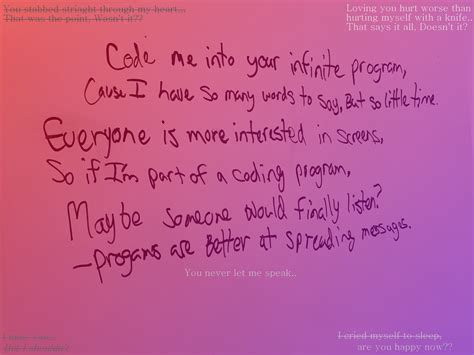 You stabbed striaght through my heart...
That was the point, Wasn't it??
Loving you hurt worse than
hurting myself with a knife..
That says it all, Doesn't it?
Code me into your infinite program,
Cause I have so many words to say, But so little time.
Everyone is more interested in screens,
So if I'm part of a coding program,
Maybe someone would finally listen?
-progams are better at spreading messages.
You never let me speak..
I cried myself to sleep,
are you happy now??